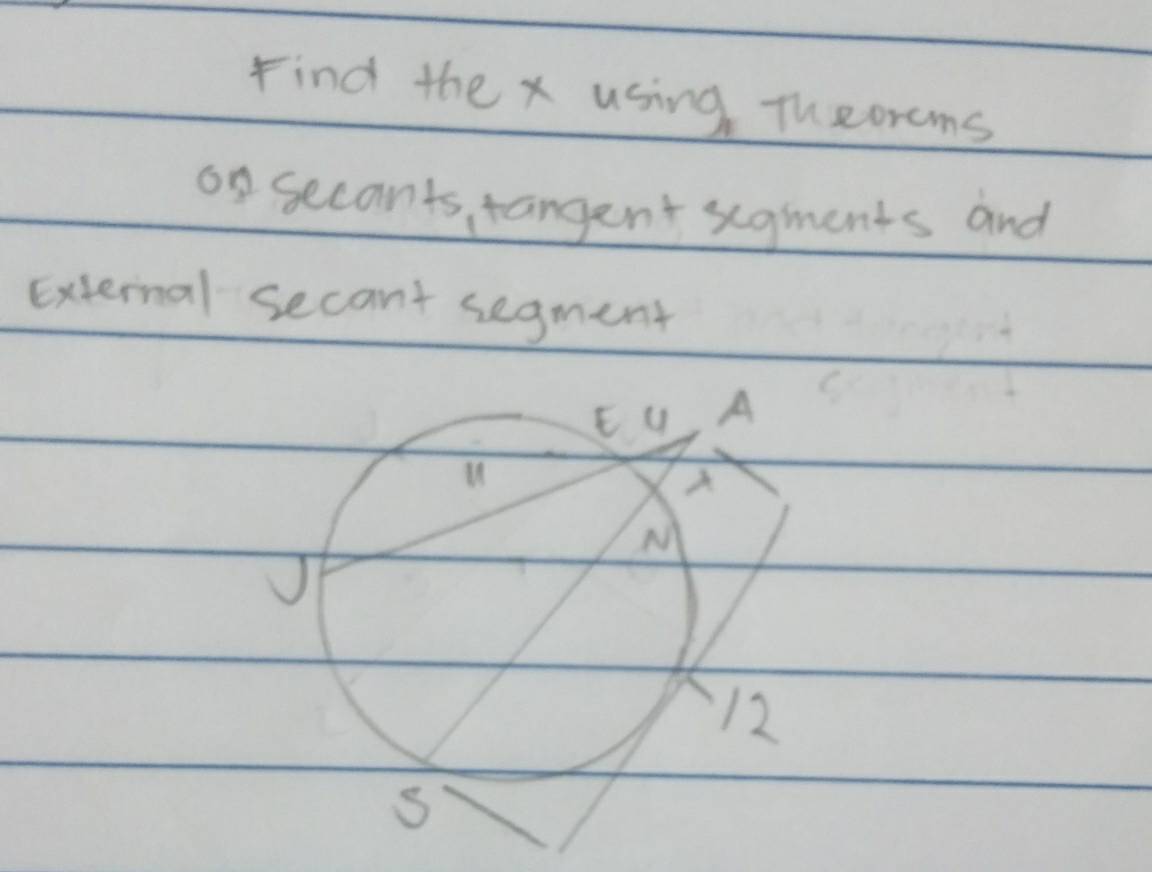 Find the x using Theorems
on secants, tangent segments and
External secant segment
E 4 A
11
x
N
J
12
S